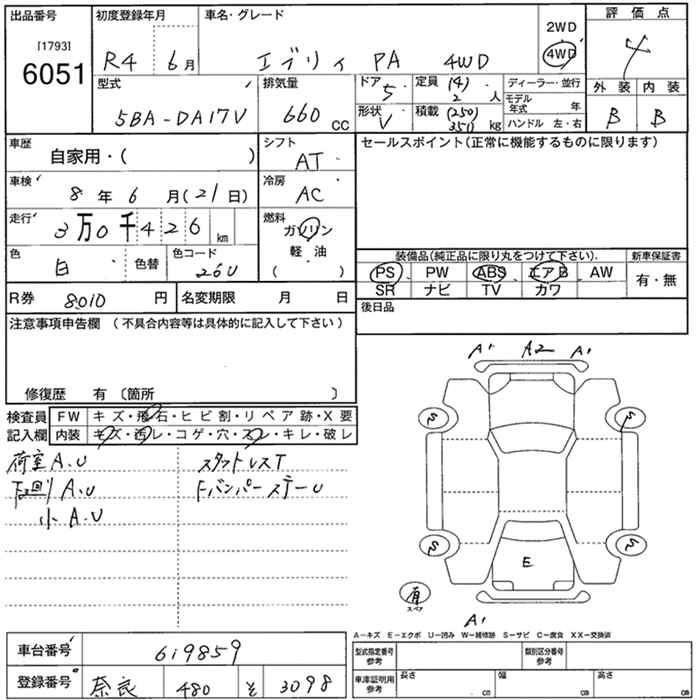 出品番号 初度登録年月 車名・グレード 2WD 評価点
[1793] 6051 R4 6月 エブリィ PA 4WD 4WD 4
型式 排気量 ドア 定員 (4) ディーラー・並行 外装 内装
5BA-DA17V 660 CC 5 2 人 モデル年式 年 B B
形状 V 積載 (250) 350 kg ハンドル 左・右
車歴 自家用・( ) シフト AT セールスポイント(正常に機能するものに限ります)
車検 8年 6月(21日) 冷房 AC
走行 3万0千426 km 燃料 ガソリン
軽油
( )
色 白 色替 色コード 26U 装備品(純正品に限り丸をつけて下さい). 新車保証書
PS PW ABS エアB AW 有・無
SR ナビ TV カワ
R券 8010 円 名変期限 月 日 後日品
注意事項申告欄 (不具合内容等は具体的に記入して下さい)
修復歴 有 〔箇所 〕
A1 A2 A1
検査員 FW キズ・飛石・ヒビ割・リペア跡・X要
記入欄 内装 キズ・汚レ・コゲ・穴・スレ・キレ・破レ
荷室A.U スタットレスT
下回りA.U FバンパーステーU
小A.U
S S
S S
E
有 スペア
A1
A-キズ E-エクボ U-凹み W-補修跡 S-サビ C-腐食 XX-交換済
車台番号 619859 型式指定番号 参考 類別区分番号 参考
登録番号 奈良 480 そ 3098 車庫証明用 参考 長さ cm 幅 cm 高さ cm